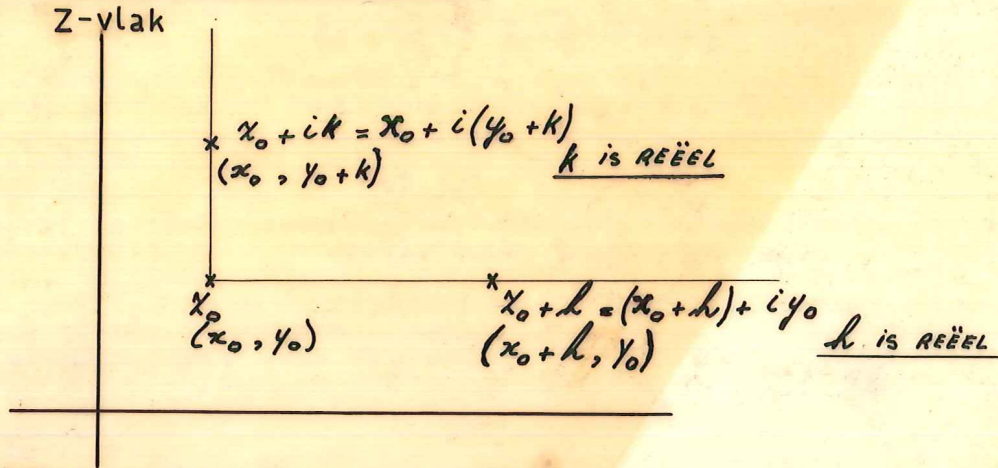 Z-vlak
z₀ + ik = x₀ + i(y₀ + k)
(x₀, y₀ + k)
k is REËEL
z₀
(x₀, y₀)
z₀ + h = (x₀ + h) + iy₀
(x₀ + h, y₀)
h is REËEL